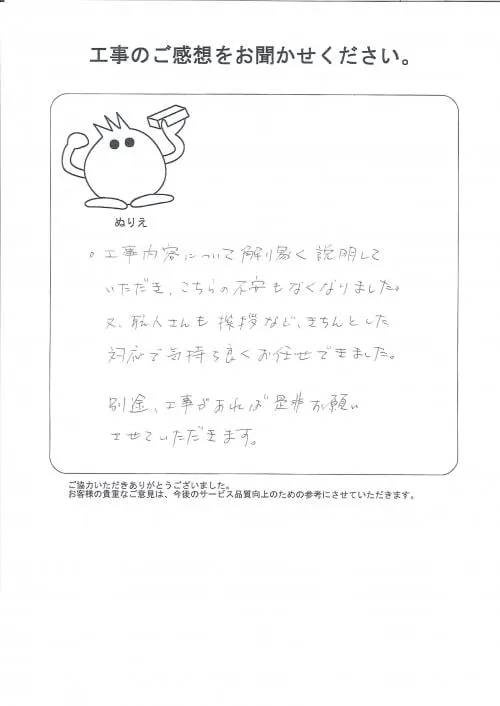 工事のご感想をお聞かせください。
ぬりえ
。工事内容について解り易く説明して
いただき、こちらの不安もなくなりました。
又、職人さんも挨拶など、きちんとした
対応で気持ち良くお任せできました。
別途、工事があれば是非お願い
させていただきます。
ご協力いただきありがとうございました。
お客様の貴重なご意見は、今後のサービス品質向上のための参考にさせていただきます。